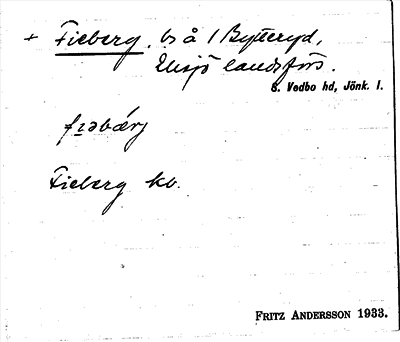 + Fieberg, ts å 1 Bytteryd,
Eksjö landsförs.
S. Vedbo hd, Jönk. l.
Fieberg kv.
FRITZ ANDERSSON 1933.